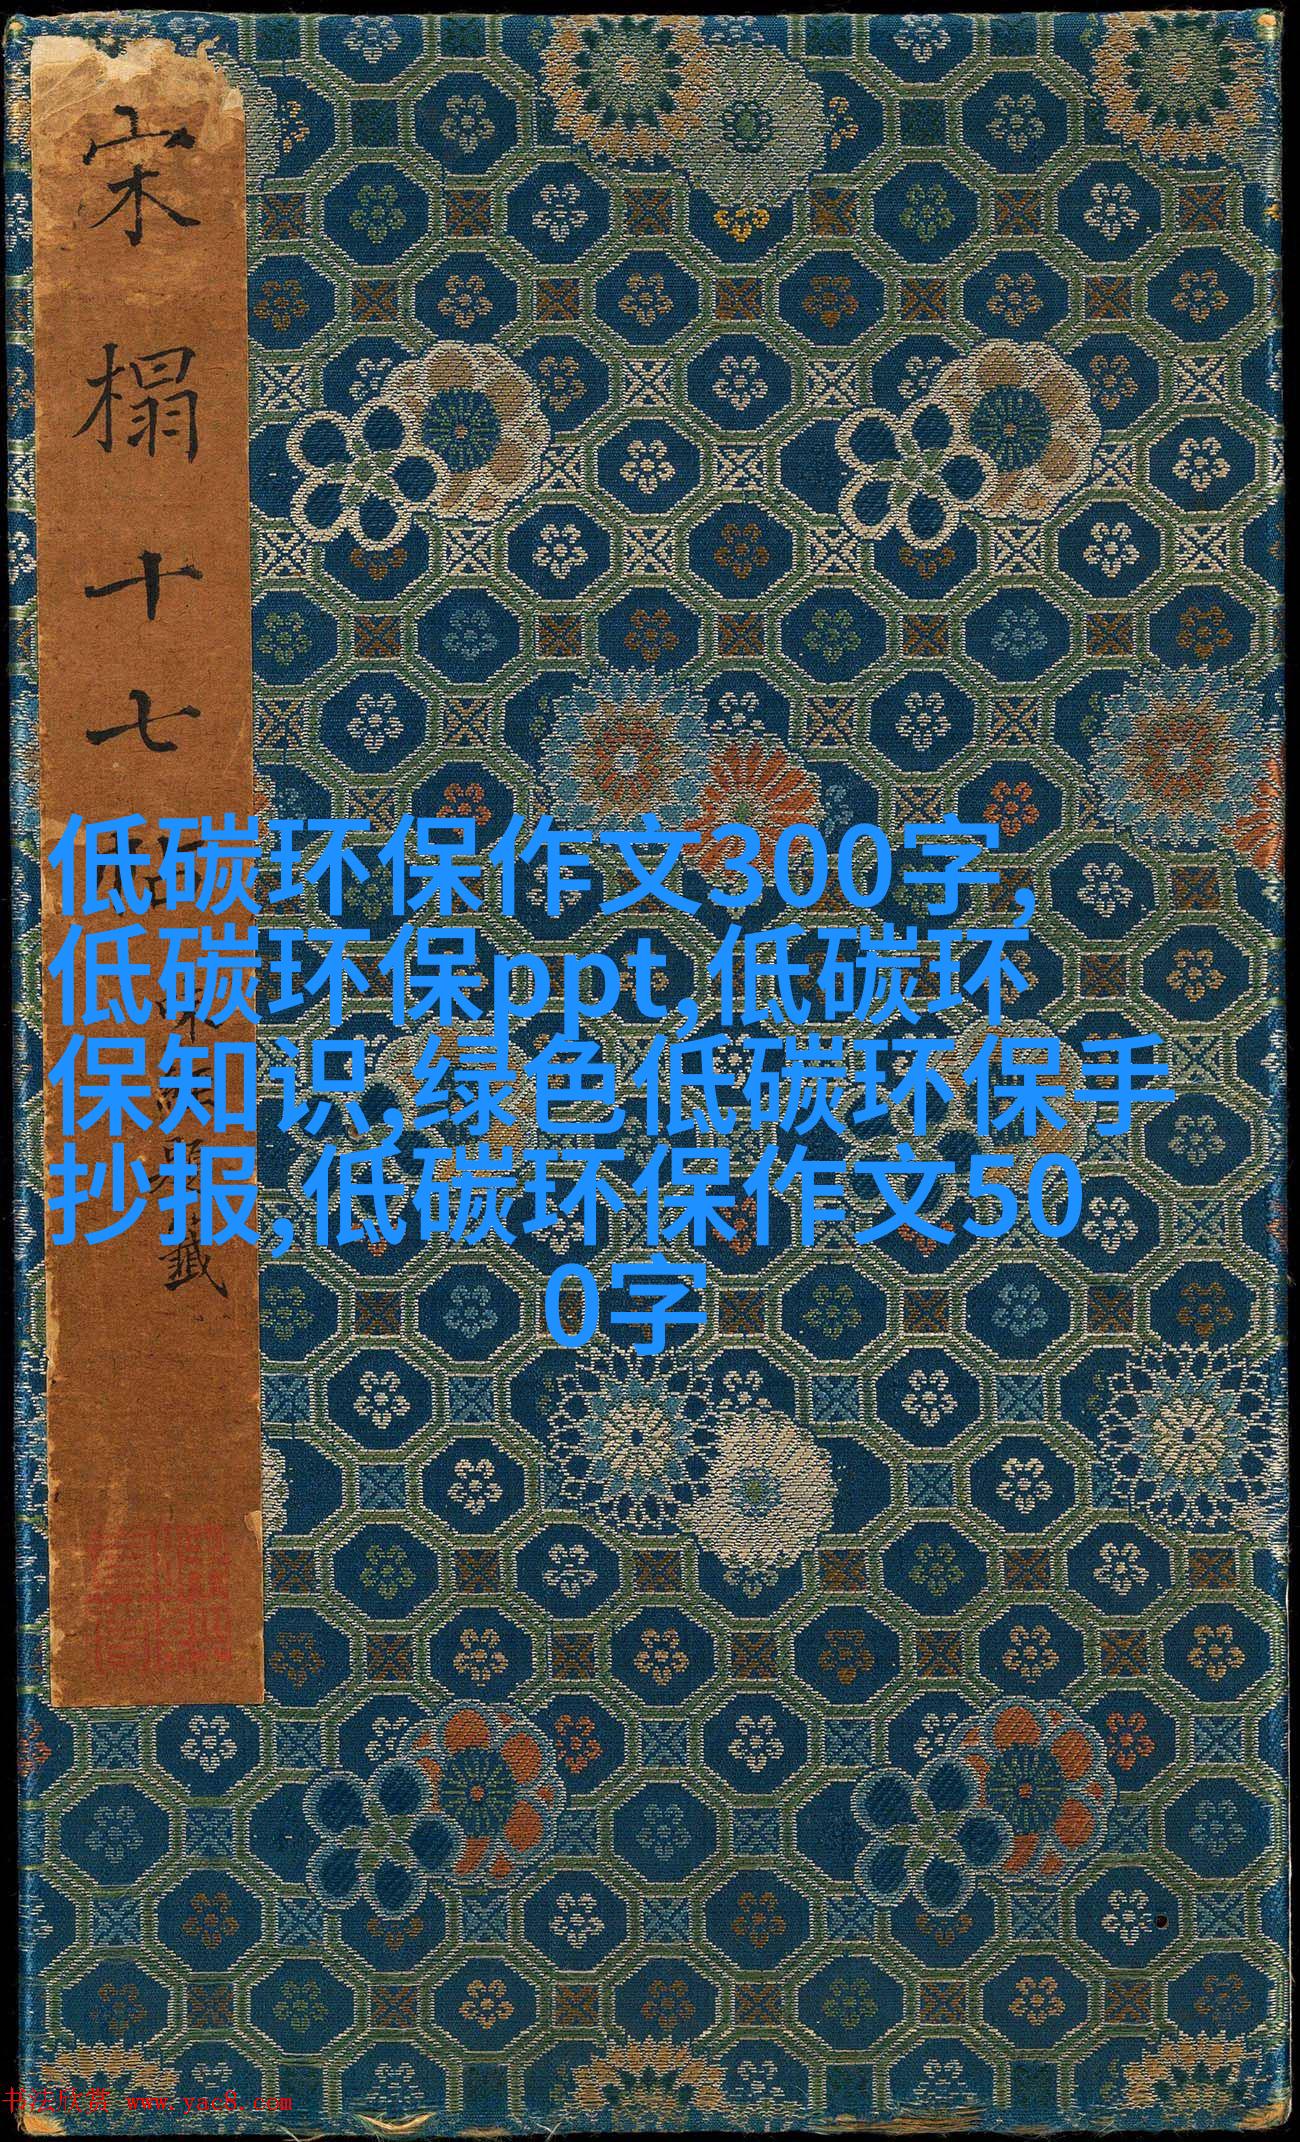 宋榻十七帖
低碳环保作文300字,
低碳环保ppt,低碳环
保知识,绿色低碳环保手
抄报,低碳环保作文50
0字
书法欣赏 www.yac8.com